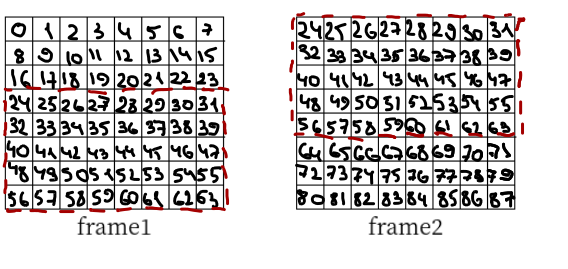 0 1 2 3 4 5 6 7
8 9 10 11 12 13 14 15
16 17 18 19 20 21 22 23
24 25 26 27 28 29 30 31
32 33 34 35 36 37 38 39
40 41 42 43 44 45 46 47
48 49 50 51 52 53 54 55
56 57 58 59 60 61 62 63
frame1
24 25 26 27 28 29 30 31
32 33 34 35 36 37 38 39
40 41 42 43 44 45 46 47
48 49 50 51 52 53 54 55
56 57 58 59 60 61 62 63
64 65 66 67 68 69 70 71
72 73 74 75 76 77 78 79
80 81 82 83 84 85 86 87
frame2